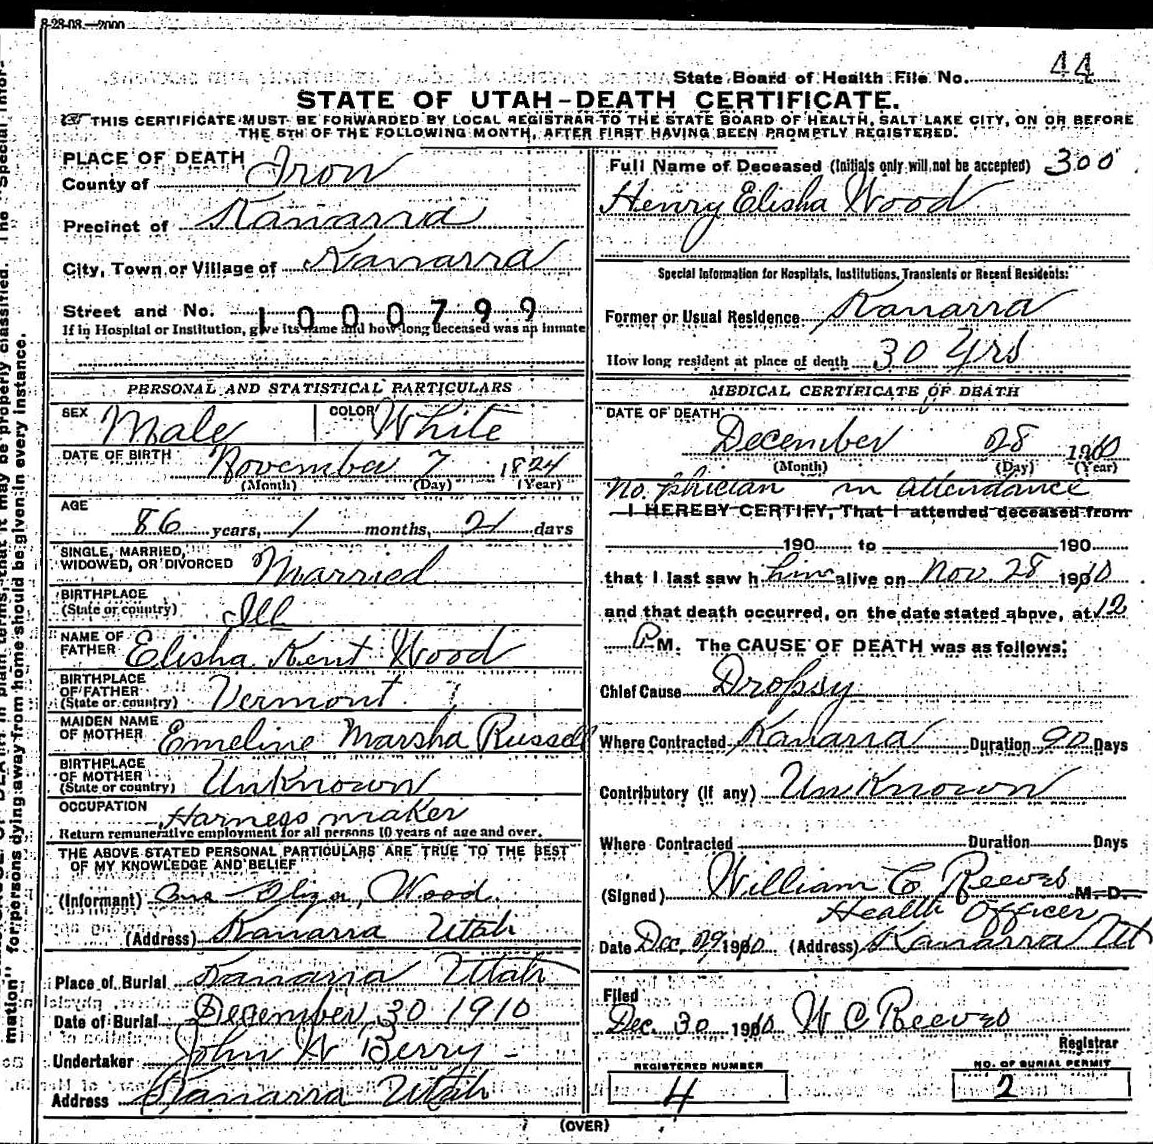 8-28-08.—2000
State Board of Health File No. 44
STATE OF UTAH-DEATH CERTIFICATE.
THIS CERTIFICATE MUST BE FORWARDED BY LOCAL REGISTRAR TO THE STATE BOARD OF HEALTH, SALT LAKE CITY, ON OR BEFORE
THE 5TH OF THE FOLLOWING MONTH, AFTER FIRST HAVING BEEN PROMPTLY REGISTERED.
PLACE OF DEATH
County of Iron
Precinct of Kanarra
City, Town or Village of Kanarra
Street and No. 1000799
If in Hospital or Institution, give its name and how long deceased was an inmate
PERSONAL AND STATISTICAL PARTICULARS
SEX Male COLOR White
DATE OF BIRTH November 7 1824
(Month) (Day) (Year)
AGE
86 years, 1 months, 21 days
SINGLE, MARRIED,
WIDOWED, OR DIVORCED Married
BIRTHPLACE
(State or country) Ill
NAME OF
FATHER Elisha Kent Wood
BIRTHPLACE
OF FATHER
(State or country) Vermont
MAIDEN NAME
OF MOTHER Emeline Marsha Russell
BIRTHPLACE
OF MOTHER
(State or country) UnKnown
OCCUPATION Harness maker
Return remunerative employment for all persons 10 years of age and over.
THE ABOVE STATED PERSONAL PARTICULARS ARE TRUE TO THE BEST
OF MY KNOWLEDGE AND BELIEF
(Informant) Wood
(Address) Kanarra Utah
Place of Burial Kanarra Utah
Date of Burial December 30 1910
Undertaker John W Berry
Address Kanarra Utah
Full Name of Deceased (Initials only will not be accepted) 300
Henry Elisha Wood
Special Information for Hospitals, Institutions, Transients or Recent Residents:
Former or Usual Residence Kanarra
How long resident at place of death 30 Yrs
MEDICAL CERTIFICATE OF DEATH
DATE OF DEATH
December 28 1910
(Month) (Day) (Year)
No. phician in attendance
I HEREBY CERTIFY, That I attended deceased from
190 to 190
that I last saw h him alive on Nov. 28 1910
and that death occurred, on the date stated above, at 12
P M. The CAUSE OF DEATH was as follows:
Chief Cause Dropsy
Where Contracted Kanarra Duration 90 Days
Contributory (if any) UnKnown
Where Contracted Duration Days
(Signed) William C Reeves M. D.
Health Officer
Date Dec, 29 1910 (Address) Kanarra Ut
Filed
Dec. 30 1910 W C Reeves
Registrar
REGISTERED NUMBER
4
NO. OF BURIAL PERMIT
2
(OVER)